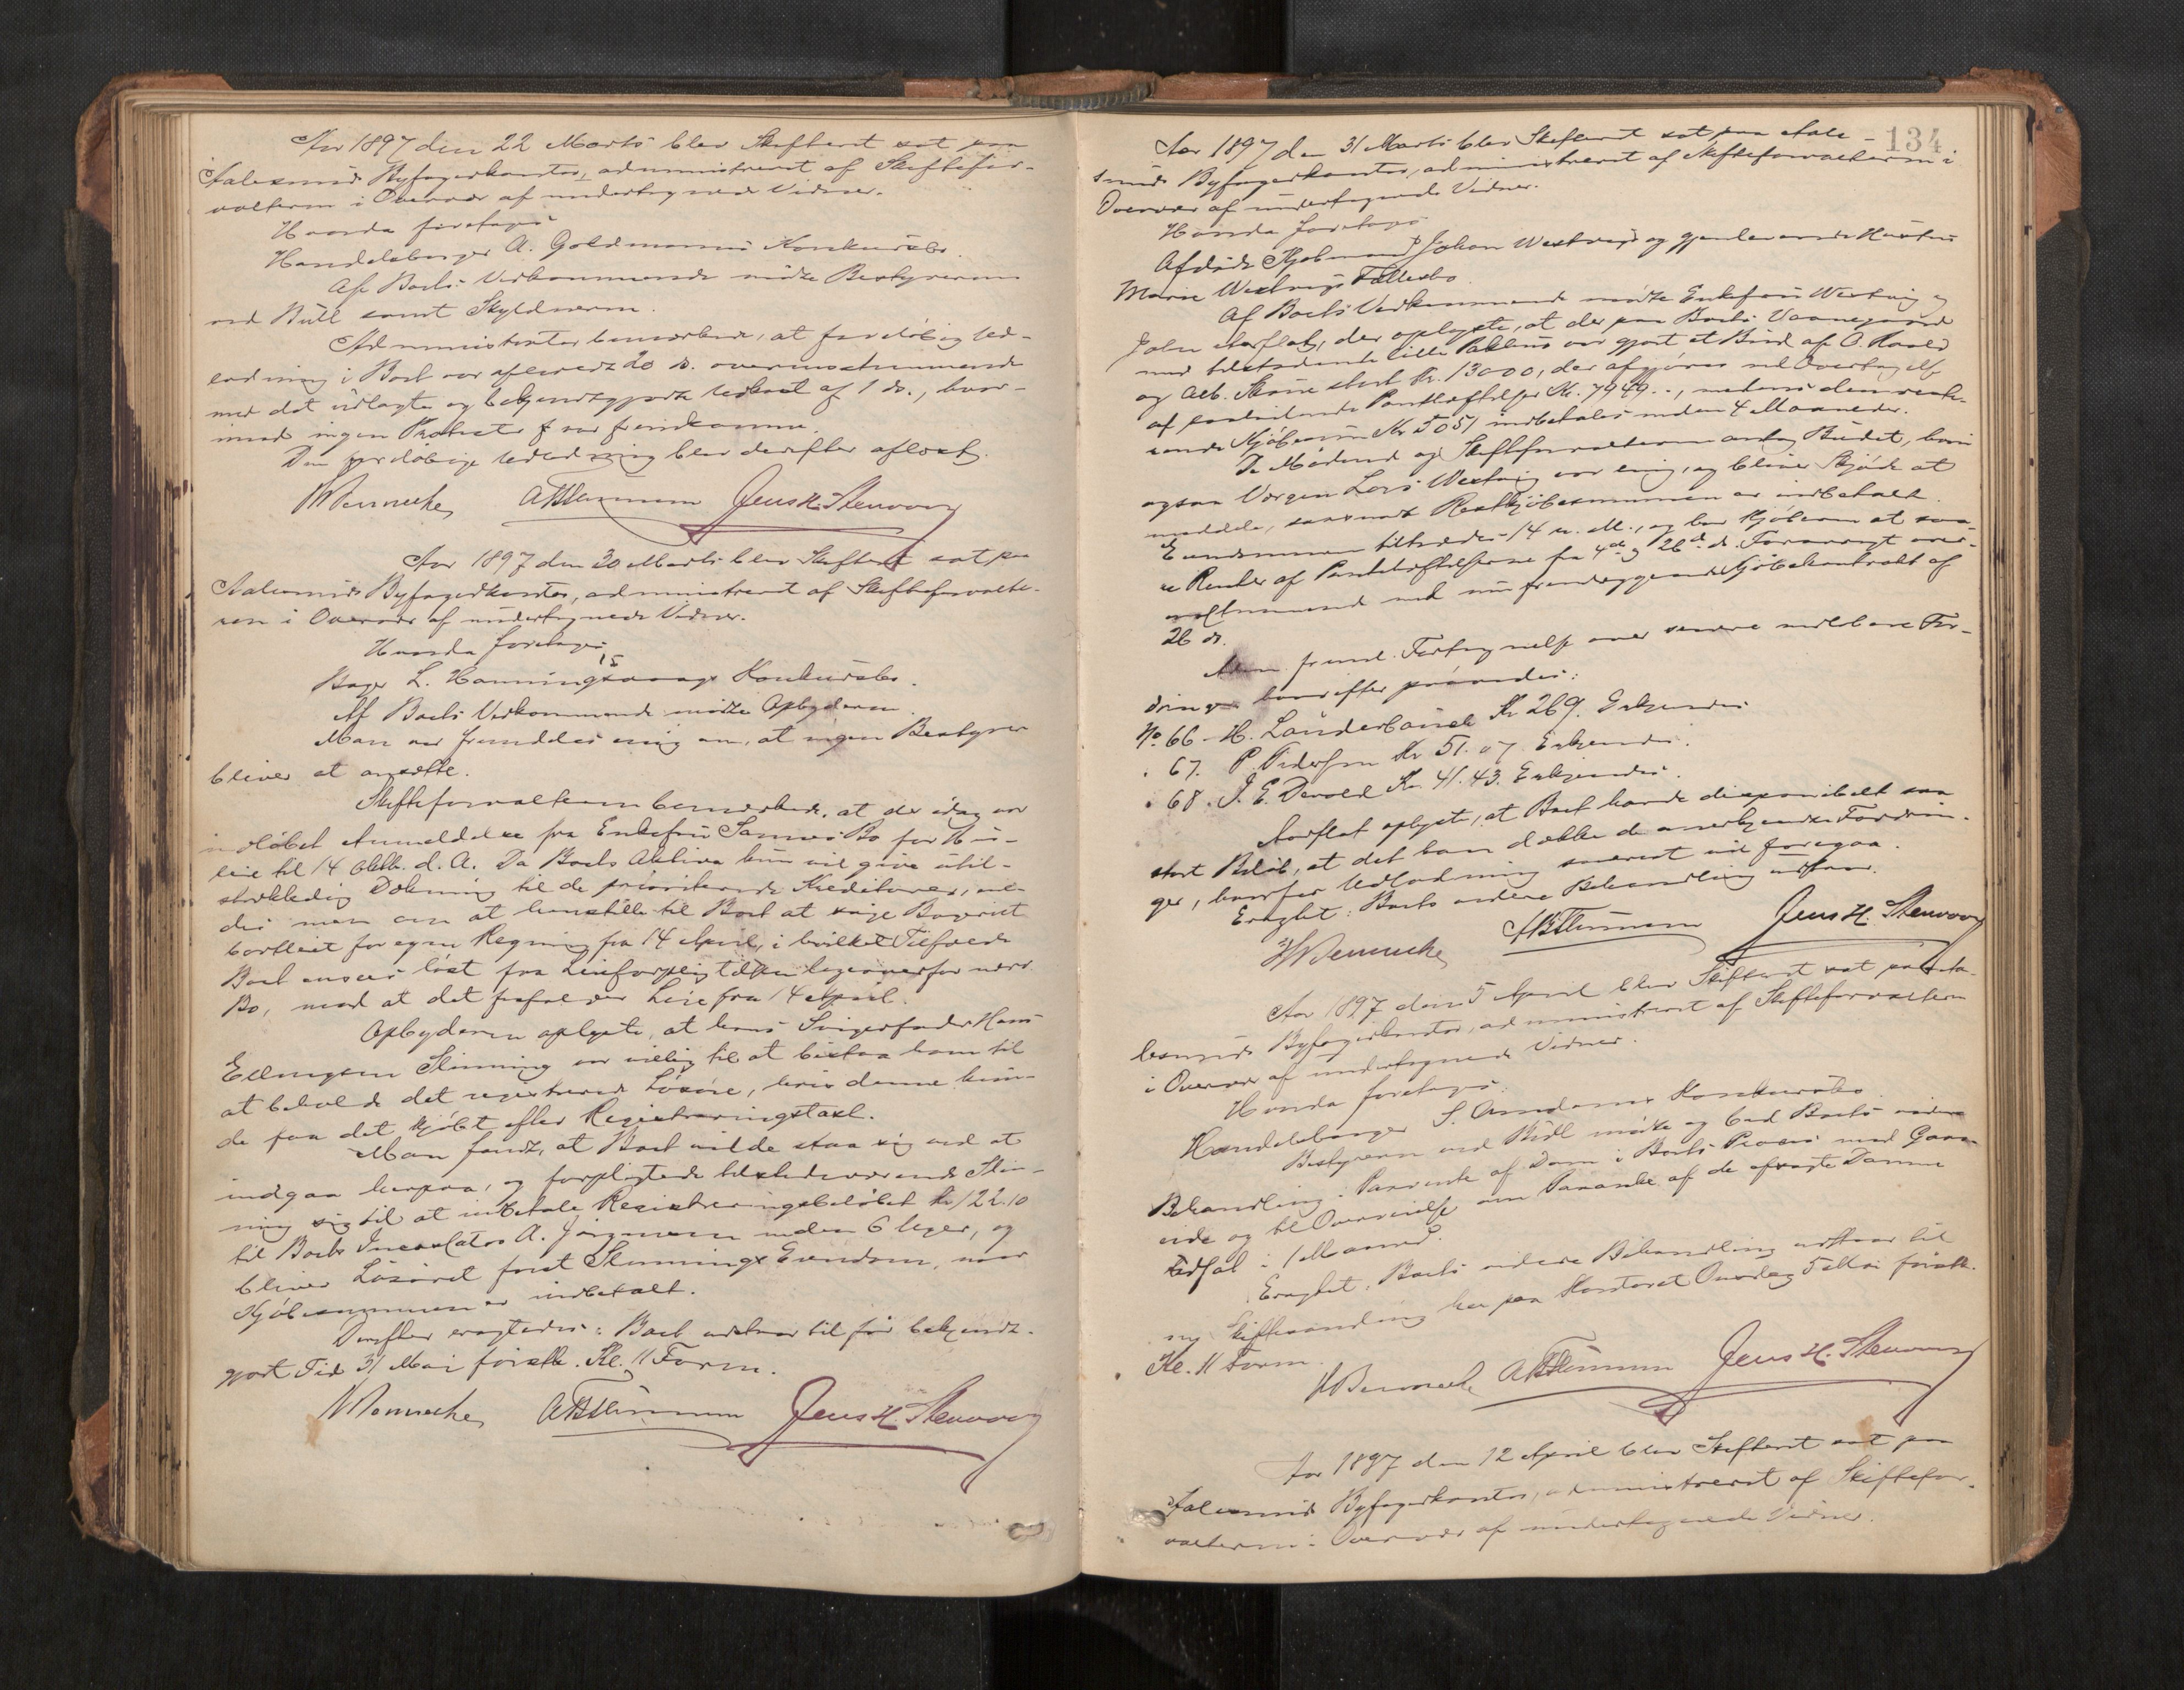 Aar 1897 den 22 Marts blev Skifteret sat paa
Aalesunds Byfogedkontor, administreret af Skiftefor-
valteren i Overvær af undertegnede Vidner.
Hvorda foretoges
Handelsborger A. Goldmanns Konkursbo.
Af Boets Vedkommende mødte Bestyreren
ved Bull samt Skyldneren.
Administrator bemærkede, at foreløbig Ud-
lodning i Boet var afleveret 20 ds. overensstemmende
med det udlagte og bekjendtgjorte Udkast af 1 ds., hvor-
imod ingen Protester var fremkomne.
Den foreløbige Udlodning blev derefter aflæst.
Bennecke Jens H. Stenvaag
Aar 1897 den 30 Marts blev Skifteret sat paa
Aalesunds Byfogedkontor, administreret af Skifteforvalte-
ren i Overvær af undertegnede Vidner.
Hvorda foretoges
15
Bager L. Honningsvaags Konkursbo.
Af Boets Vedkommende mødte Opbyderen.
Man var fremdeles enig om, at ingen Bestyrer
bliver at ansætte.
Skifteforvalteren bemærkede, at der idag var
indløbet Anmeldelse fra Enkefru Bo for Hus-
leie til 14 Oktb. d. A. Da Boets Aktiva kun vil give util-
strækkelig Dækning til de prioriterede Kreditorer,
des man om at henstille til Boet at søge Bageriet
bortleiet for egen Regning fra 14 April, i hvilket Tilfælde
Boet ansees løst fra Leieforpligtelsen ligeoverfor
Bo, mod at det frafalder Leie fra 14 April.
Opbyderen oplyste, at hans Svigerfader Hans
Ellingsen Slinning var villig til at bistaa ham til
at beholde det registrerede Løsøre, hvis denne kun-
de faa det kjøbt efter Registreringstaxt.
Man fandt, at Boet vilde staa sig ved at
indgaa herpaa, og forpligtede tilstedeværende Slin-
ning sig til at indbetale Registreringsbeløbet Kr 122.10
til Boets Incassator A. Jørgensen inden 6 Uger, og
bliver Løsøret først Slinnings Eiendom, naar
Kjøbesummen er indbetalt.
Derefter eragtedes: Boet udstaar til før bekjendt-
gjort Tid 31 Mai førstk. Kl. 11 Form.
Bennecke Jens H. Stenvaag
134
Aar 1897 den 31 Marts blev Skifteret sat paa Aale-
sunds Byfogedkontor, administreret af Skifteforvalteren i
Overvær af undertegnede Vidner.
Hvorda foretoges
Afdøde Kjøbmand Johan Westvigs og gjenlevende Hustru
Marie Westvigs Fællesbo.
Af Boets Vedkommende mødte Enkefru Westvig og
John Aarflot, der oplyste, at der paa Boets Vaanegaard
med tilstødende lille Pakhus var gjort et Bud af O. Roald
og Arb. stort Kr. 13000, der afgjøres ved Overtagelse
af paahvilende Pantheftelser Kr. 7949.., medens den reste-
rende Kjøbesum Kr 5051 indbetales inden 4 Maaneder.
De Mødende og Skifteforvalteren antog Budet, hvori
ogsaa Værgen Lars Westvig var enig, og bliver Skjøde at
meddele, saasnart Restkjøbesummen er indbetalt.
Eiendommen tiltrædes 14 n. M., og har Kjøberen at sva-
re Renter af Pantheftelserne fra 4de og 26de ds. Forøvrigt over-
ensstemmende med nu fremlæggende Kjøbekontrakt af
26 ds.
Man freml. Fortegnelse over senere meldte For-
dringer hvorefter prøvedes:
No. 66 - H. Kr 269. Erkjendes
" 67. P. Pedersen Kr 51.07 Erkjendes.
" 68. J. E. Devold Kr. 41.43. Erkjendes.
Aarflot oplyste, at Boet havde disponibelt saa
stort Beløb, at det kan dække de anerkjendte Fordrin-
ger, hvorfor Udlodning snarest vil foregaa.
Eragtet: Boets videre Behandling udstaar.
Bennecke Jens H. Stenvaag
Aar 1897 den 5 April blev Skifteret sat paa Aa-
lesunds Byfogedkontor, administreret af Skifteforvalteren
i Overvær af undertegnede Vidner.
Hvorda foretoges:
Handelsborger S. Amdams Konkursbo
Bestyreren ved Bull mødte og bad Boets videre
Behandling i Paavente af Dom i Boets Proces mod
og til Overveielse om Paaanke af de afsagte Domme
udsat i 1 Maaned.
Eragtet, Boets videre Behandling udstaar til
ny Skiftesamling her paa Kontoret Onsdag 5 Mai førstk.
Kl. 11 Form.
Bennecke Jens H. Stenvaag
Aar 1897 den 12 April blev Skifteret sat paa
Aalesunds Byfogedkontor, administreret af Skiftefor-
valteren i Overvær af undertegnede Vidner.